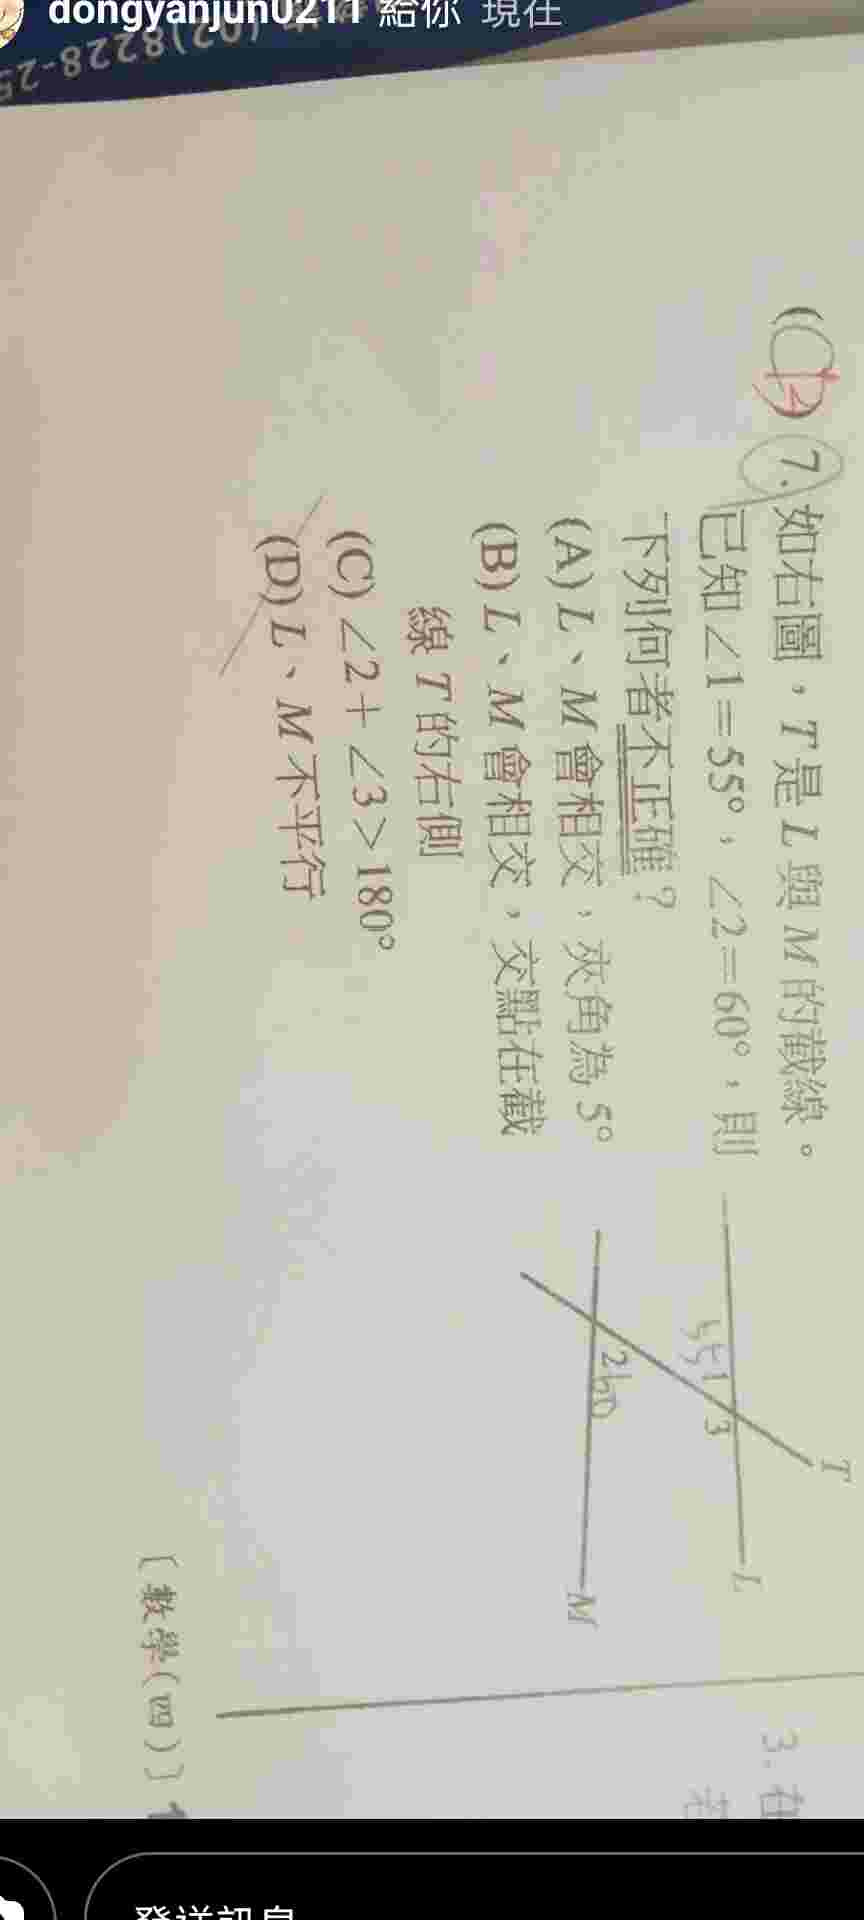 dongyanjun0211 給你 現在
(02)8228-25
7.如右圖，T是L與M的截線。
已知∠1=55°，∠2=60°，則
下列何者不正確？
(A) L、M會相交，夾角為5°
(B) L、M會相交，交點在截
線T的右側
(C) ∠2+∠3>180°
(D) L、M不平行
T
L
55 1 3
2 60
M
〔數學(四)〕
3.在
若
發送訊息